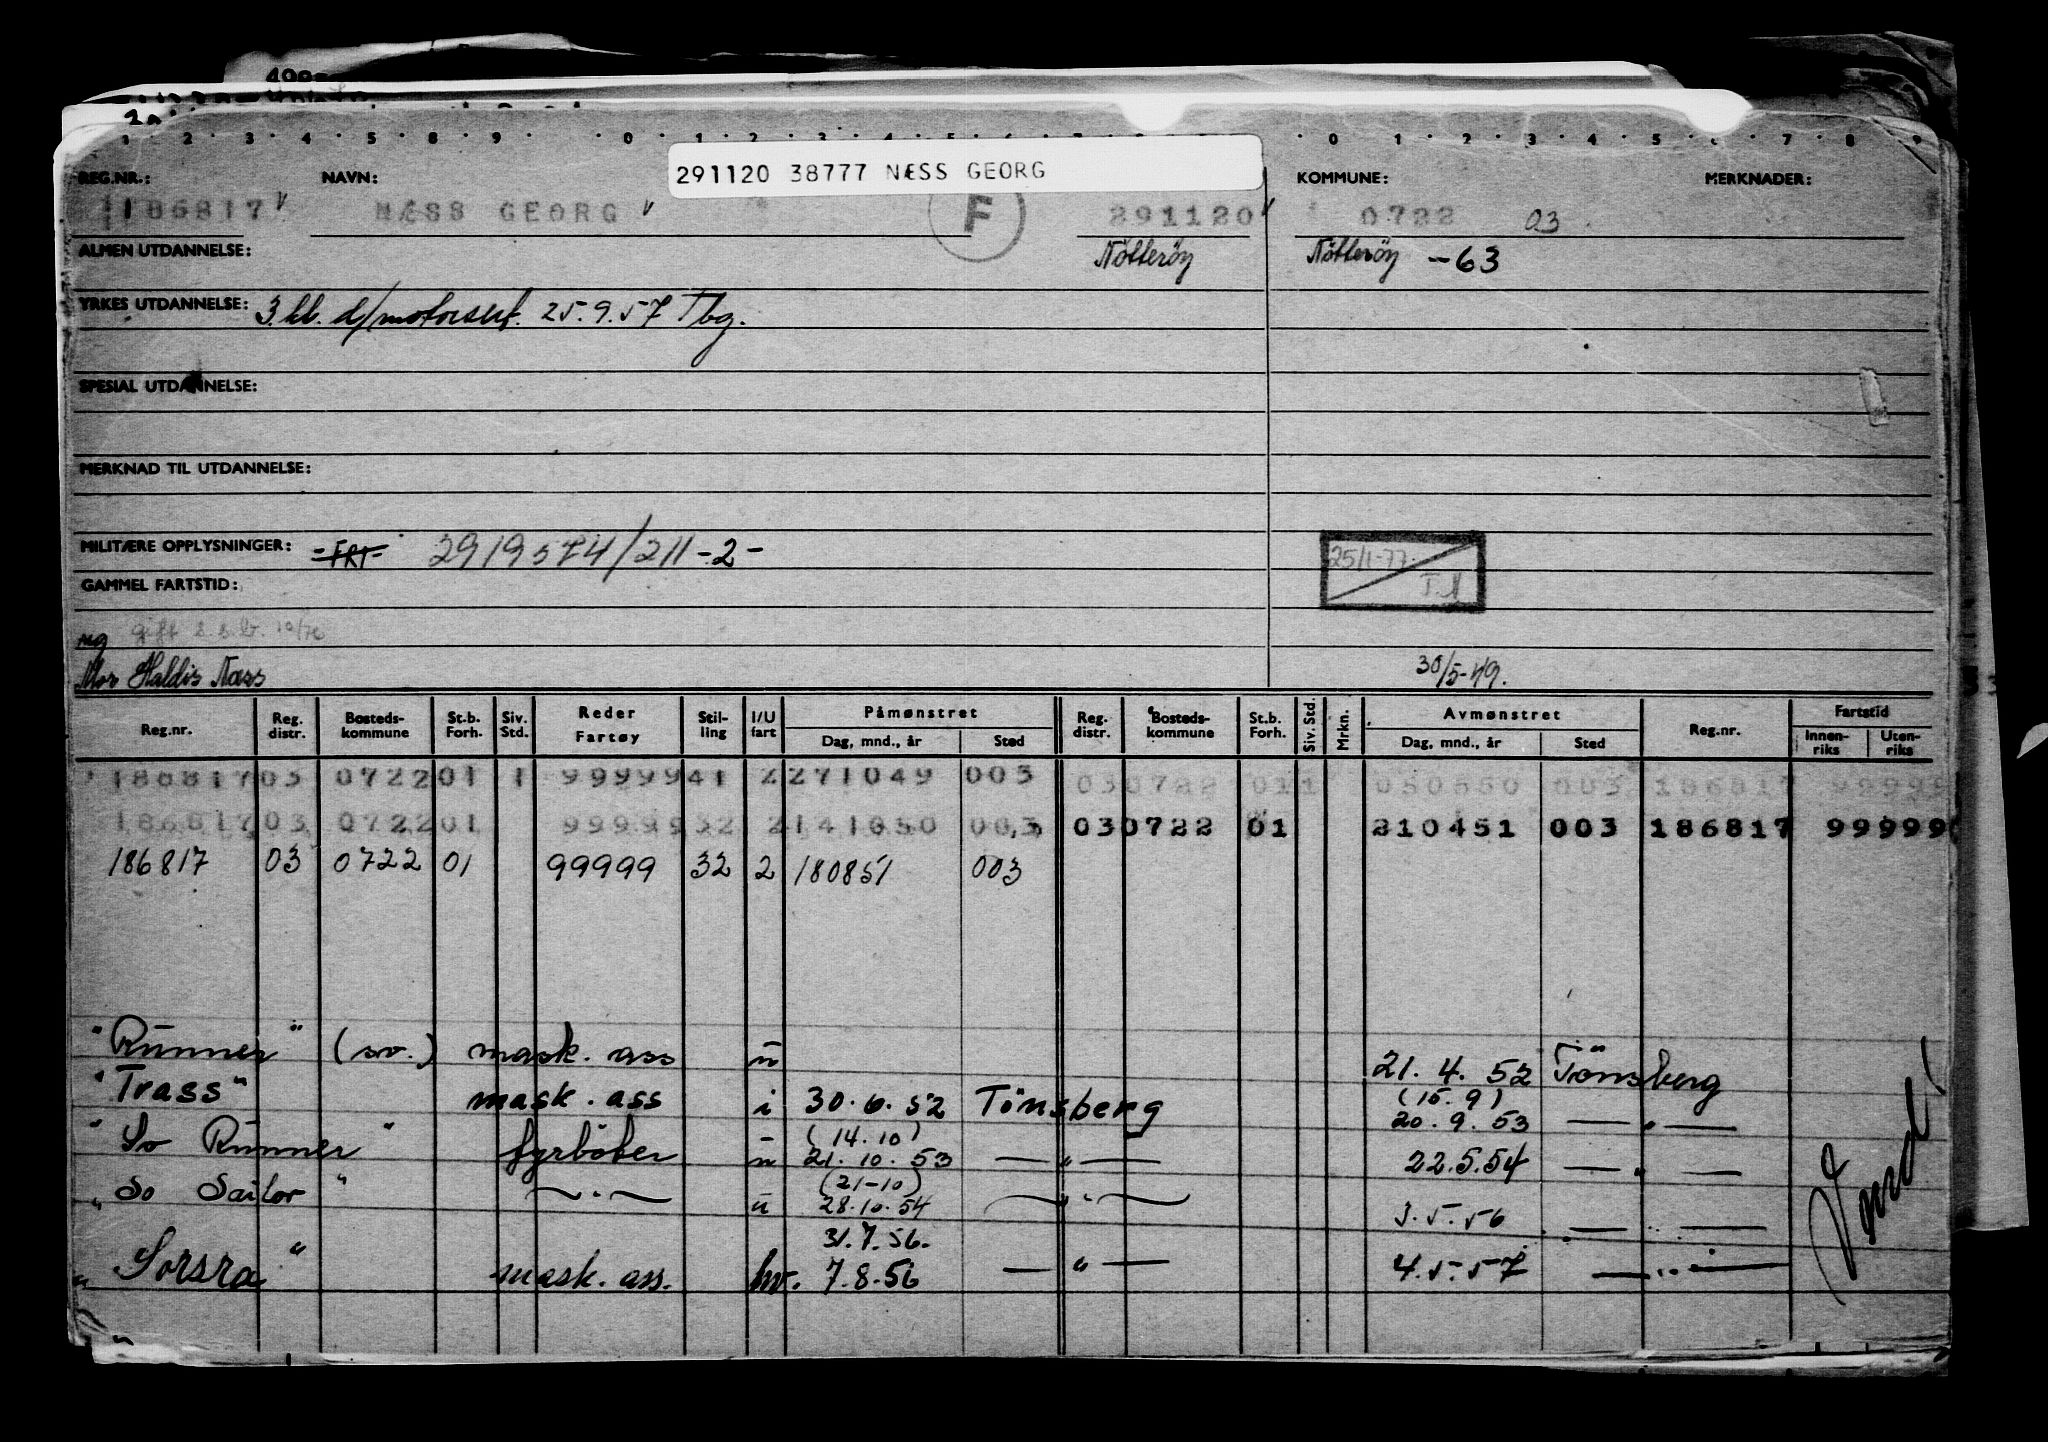 1 2 3 4 5 8 9 0 1 2 3 4 5 6 7 0 1 2 3 4 5 6 7 8 9
291120 38777 NÆSS GEORG
REG.NR.: NAVN: KOMMUNE: MERKNADER:
186817 NÆSS GEORG F 291120 0722 03
ALMEN UTDANNELSE: Nötteröy Nötteröy -63
YRKES UTDANNELSE: 3.kl. d/motorsert. 25.9.57 Tbg.
SPESIAL UTDANNELSE:
MERKNAD TIL UTDANNELSE:
MILITÆRE OPPLYSNINGER: -FRI- 2919574/211-2- 25/1-77.
GAMMEL FARTSTID:
ug gift
Mor Haldis Næss 30/5-49.
Reg.nr. Reg. distr. Bosteds-kommune St.b. Forh. Siv. Std. Reder Fartøy Stil-ling I/U fart Påmønstret Dag, mnd., år Sted Reg. distr. Bosteds-kommune St.b. Forh. Siv. Std. Mrkn. Avmønstret Dag, mnd., år Sted Reg.nr. Fartstid Innen-riks Uten-riks
186817 03 0722 01 1 99999 41 2 271049 003 03 0722 01 1 050550 003 186817 99999
186817 03 0722 01 99999 32 2 141050 003 03 0722 01 210451 003 186817 99999
186817 03 0722 01 99999 32 2 180851 003
"Runner" (sv.) mask. ass u 21. 4. 52 Tönsberg
"Trass" mask. ass i 30.6.52 Tönsberg (15.9) 20.9.53 — " —
"So Runner" fyrböter u (14.10) 21.10.53 — " — 22.5.54 — " —
"So Sailor" — " — u (21-10) 28.10.54 — " — 3.5.56 — " —
31.7.56.
"Sorsra" mask. ass. hv. 7.8.56 — " — 4.5.57 — " —